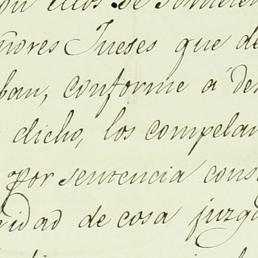 ellos de
ñores Jueses que de
ban, conforme a
dicho, los compelan
por sentencia cons
idad de cosa juzg